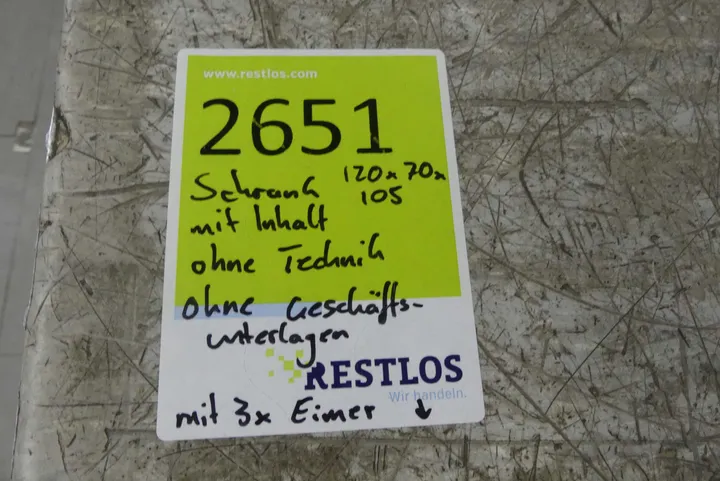 www.restlos.com
2651
Schrank 120x70x
105
mit Inhalt
ohne Technik
ohne Geschäfts-
unterlagen
RESTLOS
Wir handeln.
mit 3x Eimer ↓